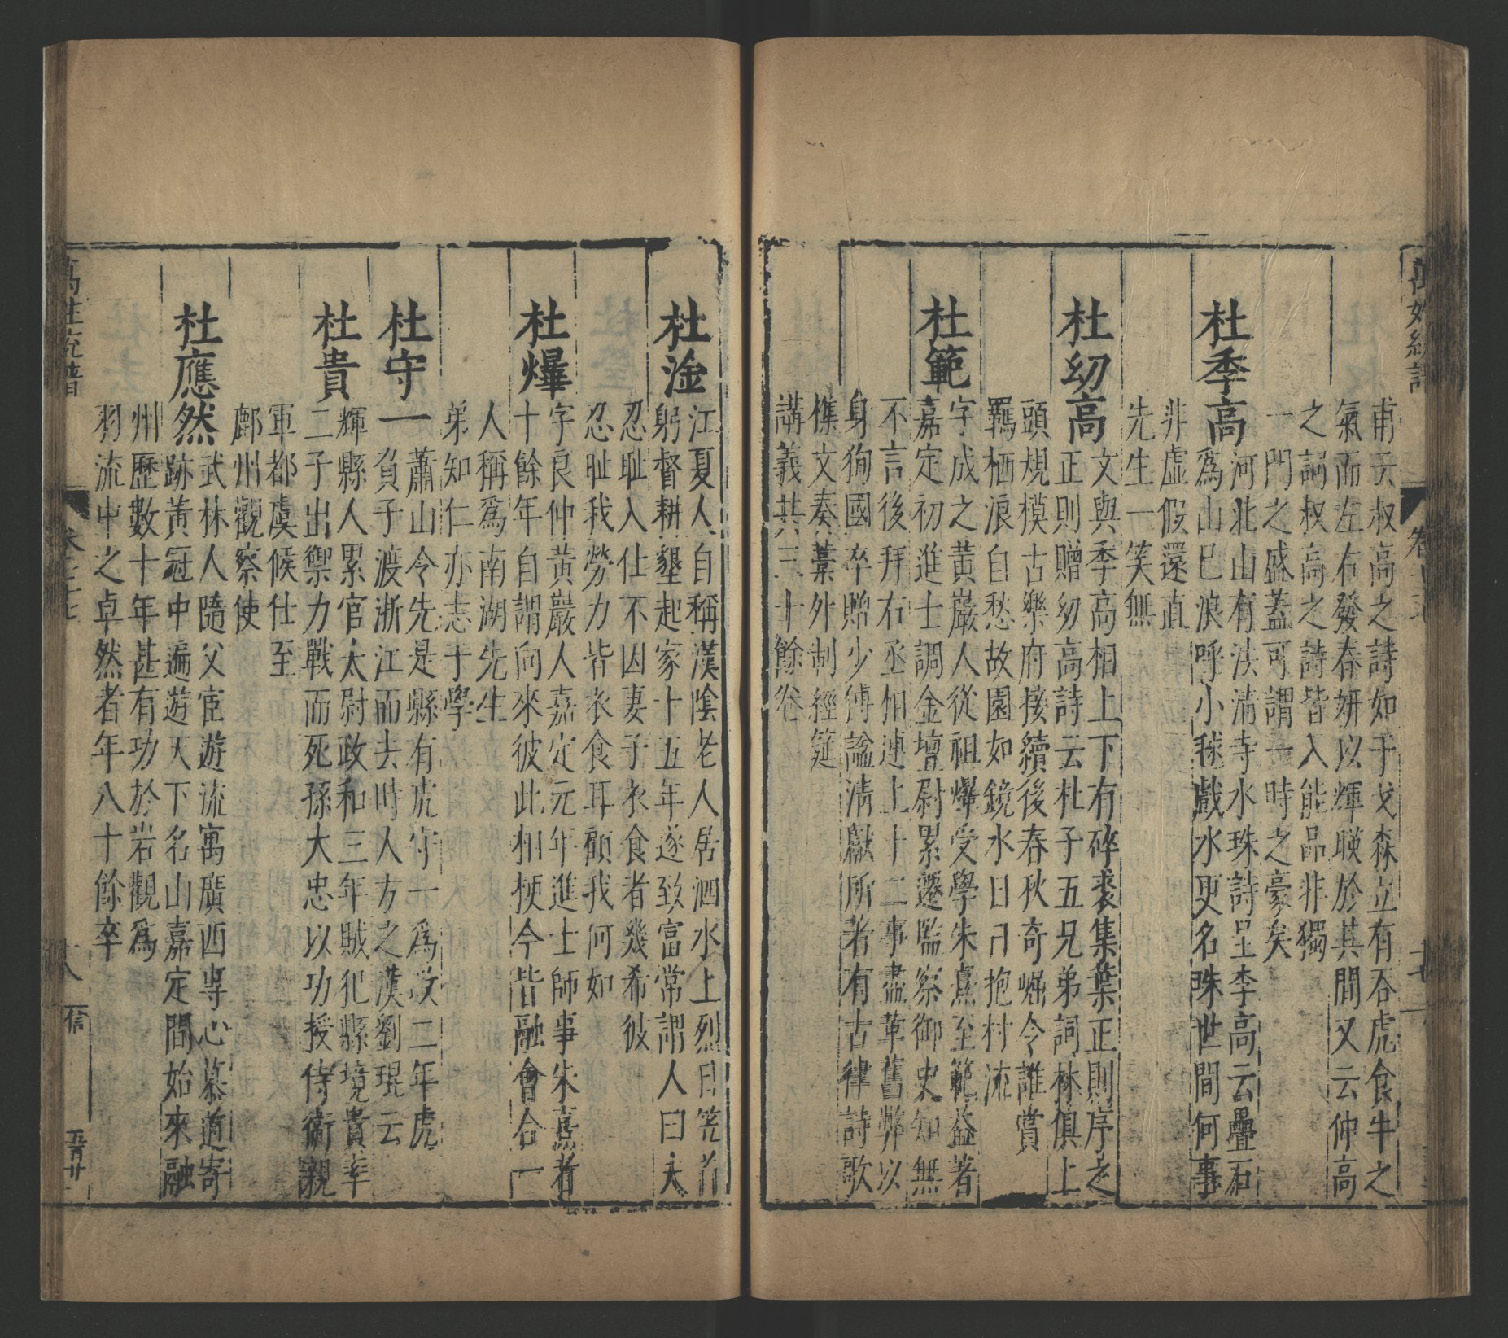 甫云叔高之詩如干戈森立有吞虎食牛之
氣而左右發春妍以輝暎於其間又云仲高
之詞叔高之詩皆入能品非獨
一門之盛蓋可謂一時之豪矣
杜季高
河北山有法清寺水珠詩呈李高云疊石
爲山已浪呼小毬戲水更名珠世間何事
非虛假還直
先生一笑無
杜幼高
文與季高相上下有碎裘集葉正則序之
正則贈幼高詩云杜子五兄弟詞林俱上
頭規模古樂府接續後春秋奇崛令誰賞
羈栖浪自愁故園如鏡水日日抱村流
杜範
字成之黃巖人從祖爗受學朱熹至範益著
嘉定初進士調金壇尉累遷監察御史知無
不言後拜右丞相連上十二事盡革舊弊以
身狥國卒贈少傅諡清獻所著有古律詩歌
樵文奏藁外制經筵
講義共三十餘卷
杜淦
江夏人自稱漢陰老人居泗水上烈日笠首
躬督耕墾起家十五年遂致富常謂人曰夫
忍耻入仕不因妻子衣食者幾希彼
忍耻我勞力皆衣食耳顧我何如
杜爗
字良仲黃巖人嘉定元年進士師事朱熹者
十餘年自謂向來彼此相挭今皆融會合一
人稱爲南湖先生
弟知仁亦志于學
杜守一
蕭山令先是縣有虎守一爲政二年虎
負子渡浙江而去时人方之漢劉琨云
杜貴
輝縣人累官太尉政和三年賊犯縣境貴率
二子出禦力戰而死孫大忠以功授侍衛親
軍都虞候仕至
鄜州觀察使
杜應然
武林人隨父宦遊流寓廣西專心慕道寄
跡黃冠中遍遊天下名山嘉定間始來融
州歷數十年甚有功於岩觀爲
羽流中之卓然者年八十餘卒